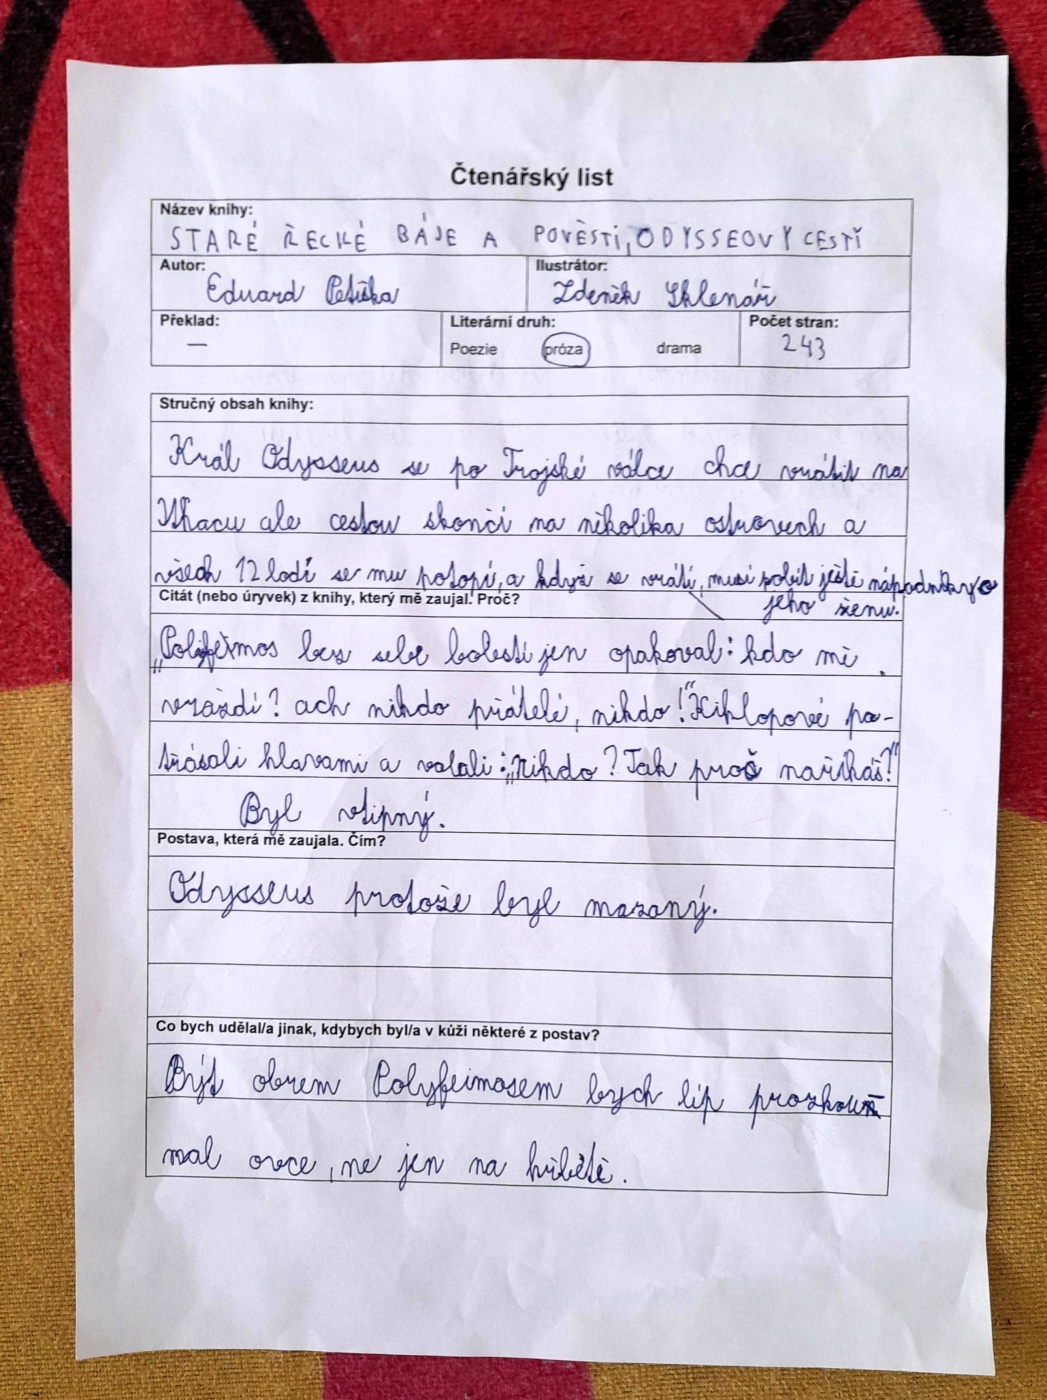 Čtenářský list
Název knihy:
STARÉ ŘECKÉ BÁJE A POVĚSTI, ODYSSEOVY CESTY
Autor: Ilustrátor:
Eduard Petiška Zdeněk Sklenář
Překlad: Literární druh: Počet stran:
— Poezie próza drama 243
Stručný obsah knihy:
Král Odysseus se po Trojské válce chce vrátit na
Ithacu ale cestou skončí na několika ostrovech a
všech 12 lodí se mu potopí, a když se vrátí, musí pobít ještě nápadníky o
jeho ženu.
Citát (nebo úryvek) z knihy, který mě zaujal. Proč?
„Polyfeimos bez sebe bolestí jen opakoval: kdo mě
vraždí? ach nikdo přátelé, nikdo!" Kiklopové po-
třásali hlavami a volali: „Nikdo? Tak proč naříkáš?"
Byl vtipný.
Postava, která mě zaujala. Čím?
Odysseus protože byl mazaný.
Co bych udělal/a jinak, kdybych byl/a v kůži některé z postav?
Být obrem Polyfeimosem bych líp prozkou
mal ovce, ne jen na hřbětě.